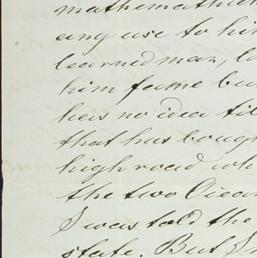 mathematician
any use to him
learned man, l
him fame bu
has no idea til
that has bough
high road wh
the two Ocean
I was told the
state. But I